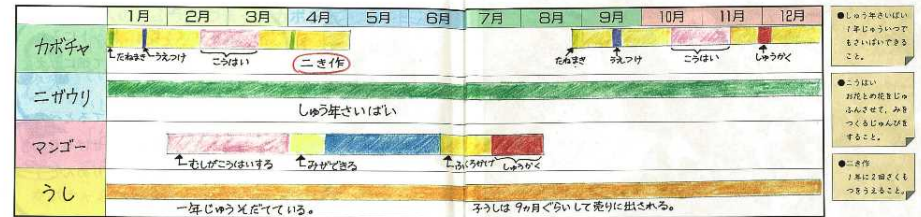 1月 2月 3月 4月 5月 6月 7月 8月 9月 10月 11月 12月
カボチャ
たねまき うえつけ こうはい 二き作 たねまき うえつけ こうはい しゅうかく
ニガウリ
しゅう年さいばい
マンゴー
むしがこうはいする みができる ふくろかけ しゅうかく
うし
一年じゅうそだてている。 子うしは9ヵ月ぐらいして売りに出される。
●しゅう年さいばい
1年じゅういつで
もさいばいできる
こと。
●こうはい
お花とめ花をじゅ
ふんさせて、みを
つくるじゅんびを
すること。
●二き作
1年に2回さくも
つをうえること。